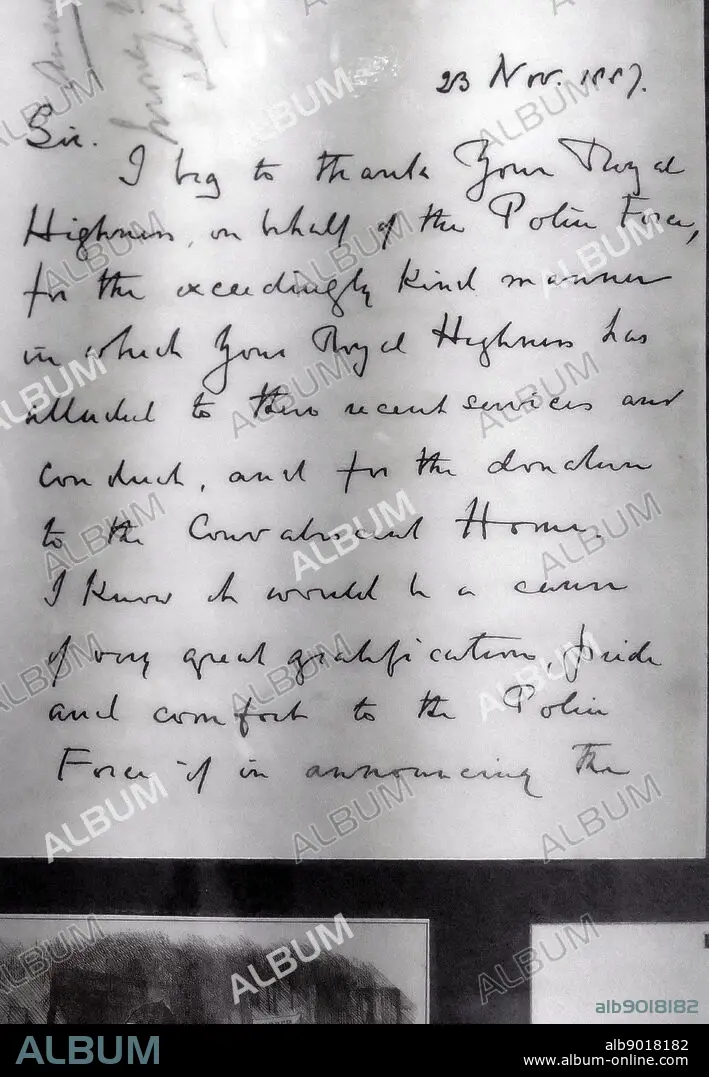 23 Nov. 1887.
Sir.
I beg to thank Your Royal
Highness, on behalf of the Police Force,
for the exceedingly kind manner
in which Your Royal Highness has
alluded to their recent services and
conduct, and for the donation
to the Convalescent Home.
I know it would be a cause
of very great gratification, pride
and comfort to the Police
Force if in announcing the
ALBUM
alb9018182
ALBUM
alb9018182
www.album-online.com